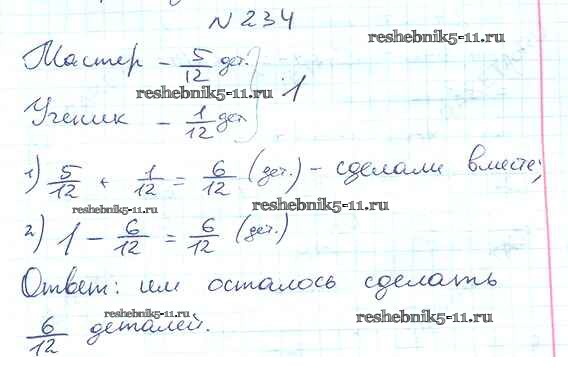 № 234
reshebnik5-11.ru
Мастер - 5/12 дет.
reshebnik5-11.ru
1
Ученик - 1/12 дет
1) 5/12 + 1/12 = 6/12 (дет.) - сделали вместе;
reshebnik5-11.ru
reshebnik5-11.ru
2) 1 - 6/12 = 6/12 (дет.)
Ответ: им осталось сделать
6/12 деталей.
reshebnik5-11.ru
reshebnik5-11.ru